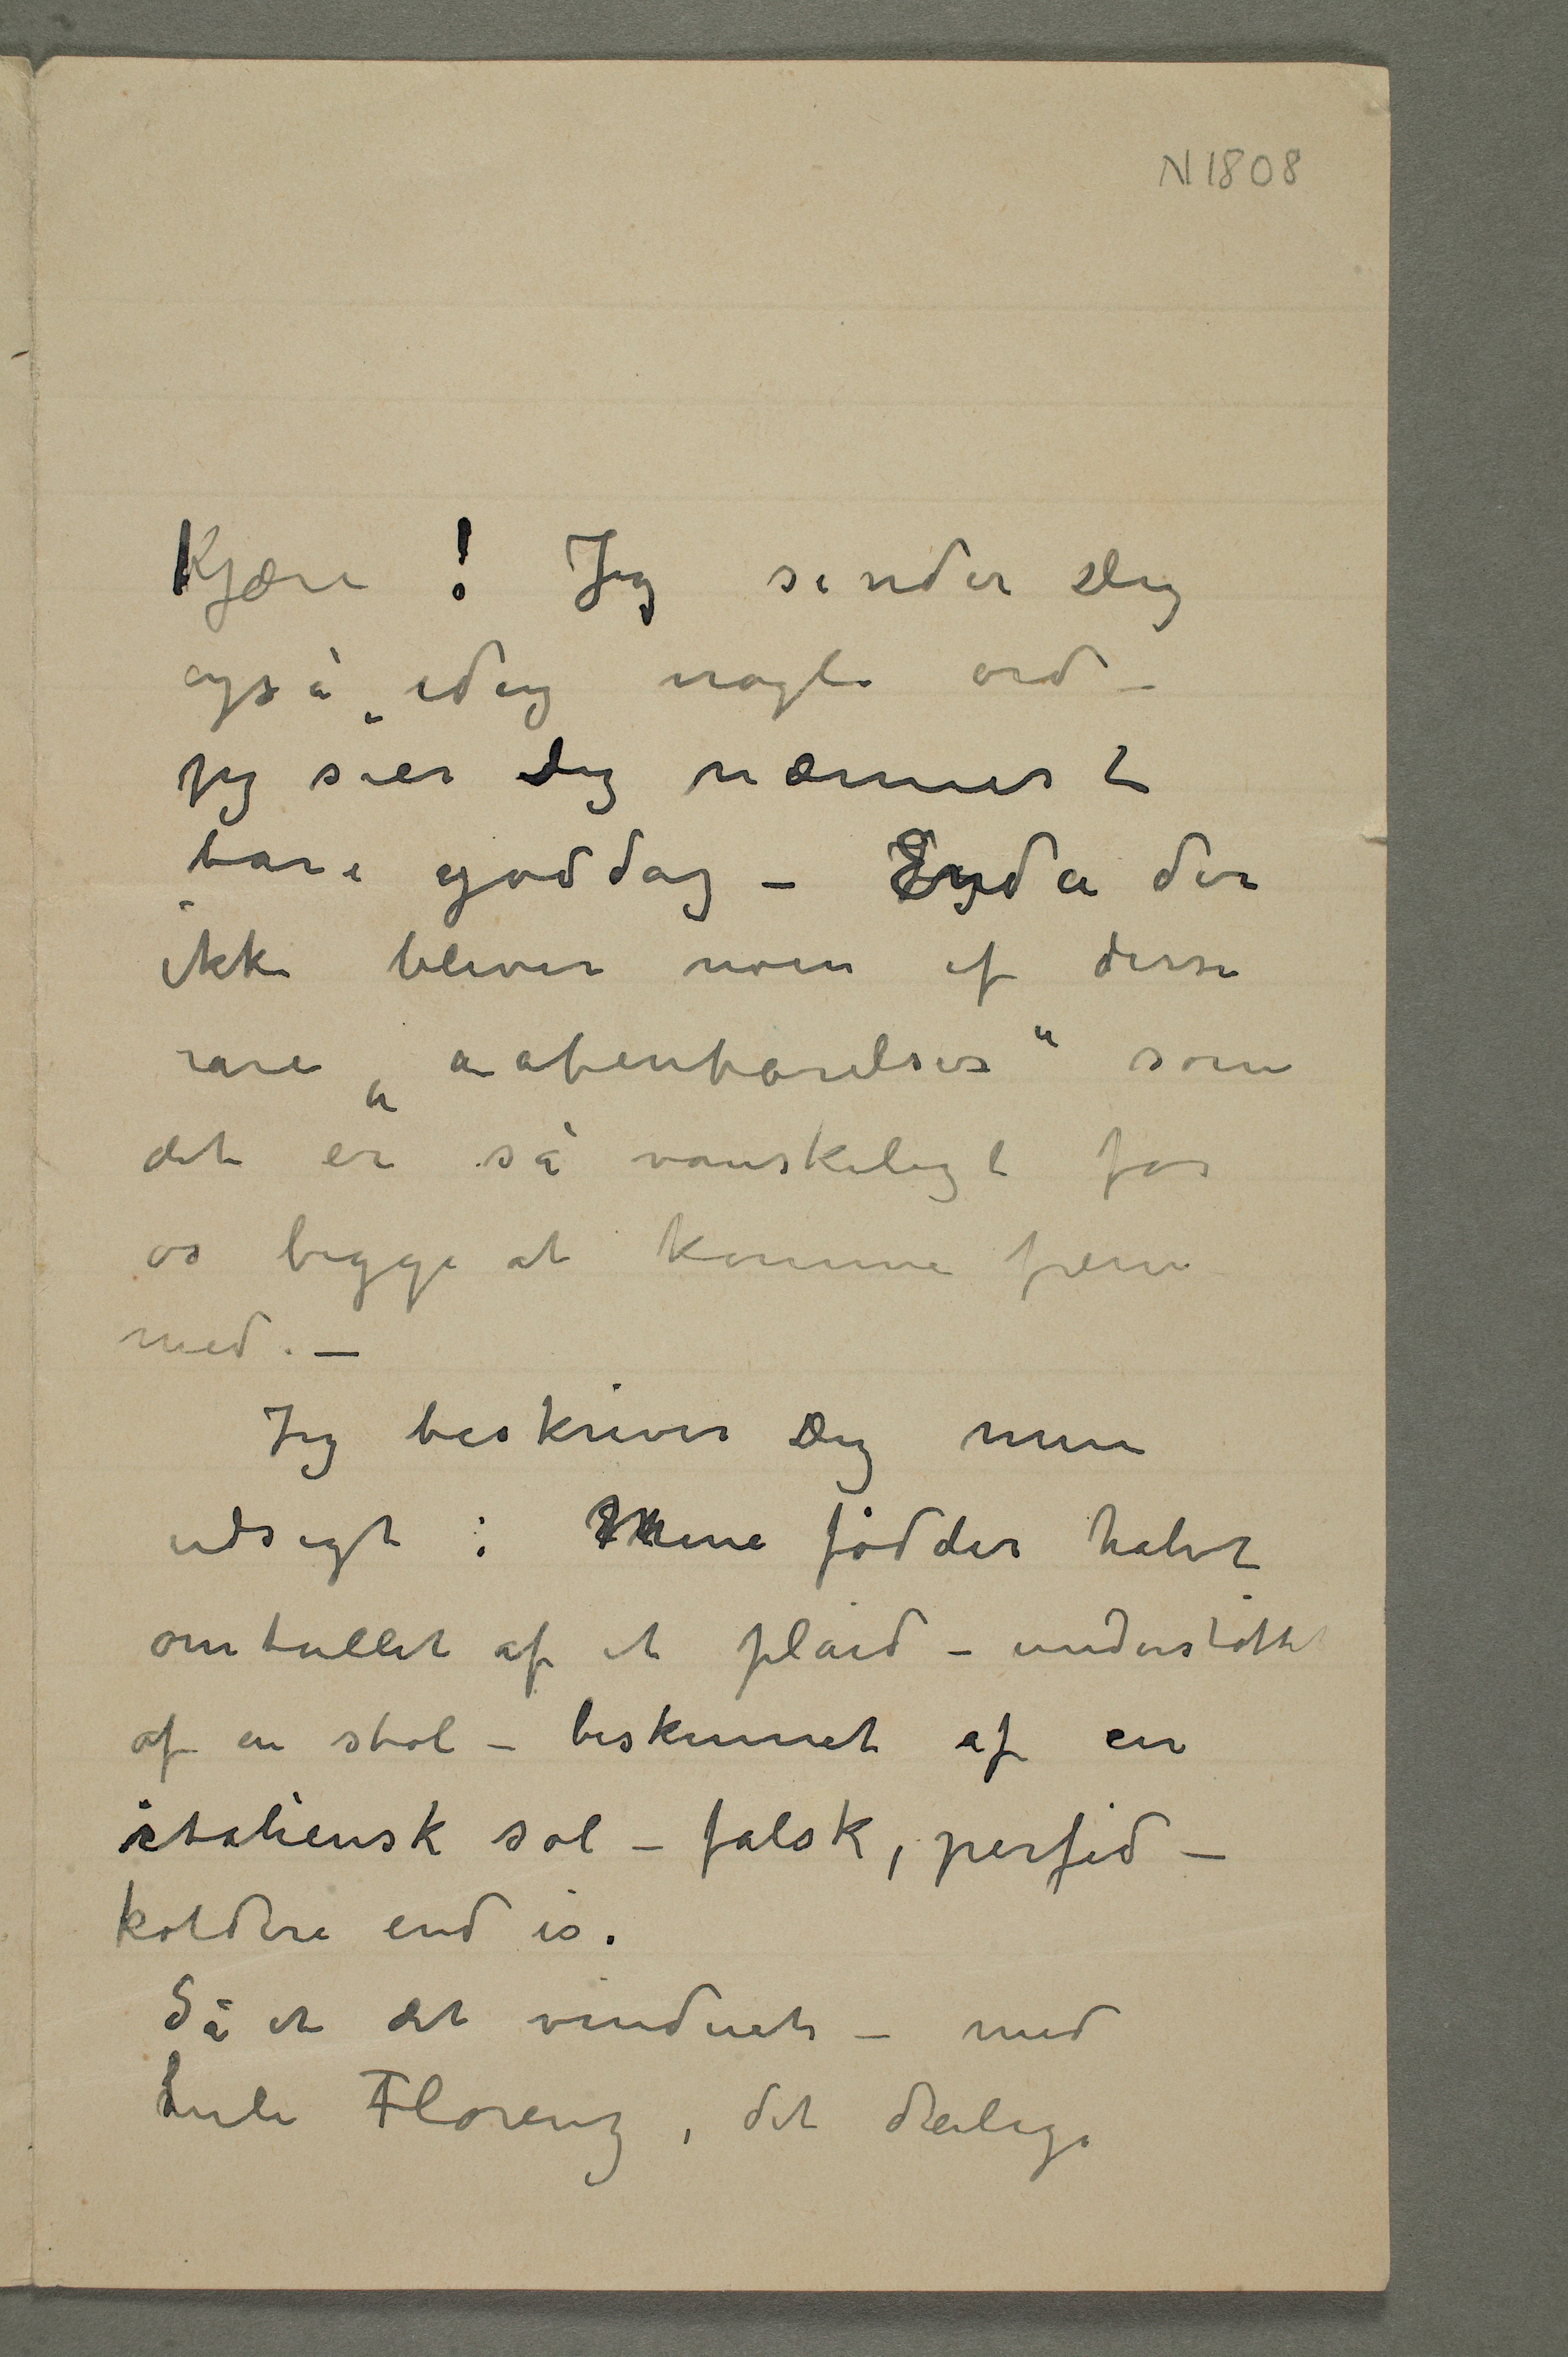 N 1808
Kjære ! Jeg sender Dig
også idag nogle ord –
jeg sier Dig nærmest
bare goddag – Enda der
ikke bliver noen af disse
rare „aabenbarelser“ som
det er så vanskeligt for
os begge at komme frem
med. –
Jeg beskriver Dig min
udsigt : Mine fødder halvt
omtullet af et plaid – understøttet
af en stol – beskinnet af en
italiensk sol – falsk, perfid –
koldere end is.
Så et det vinduet – med
hele Florenz, det deilige